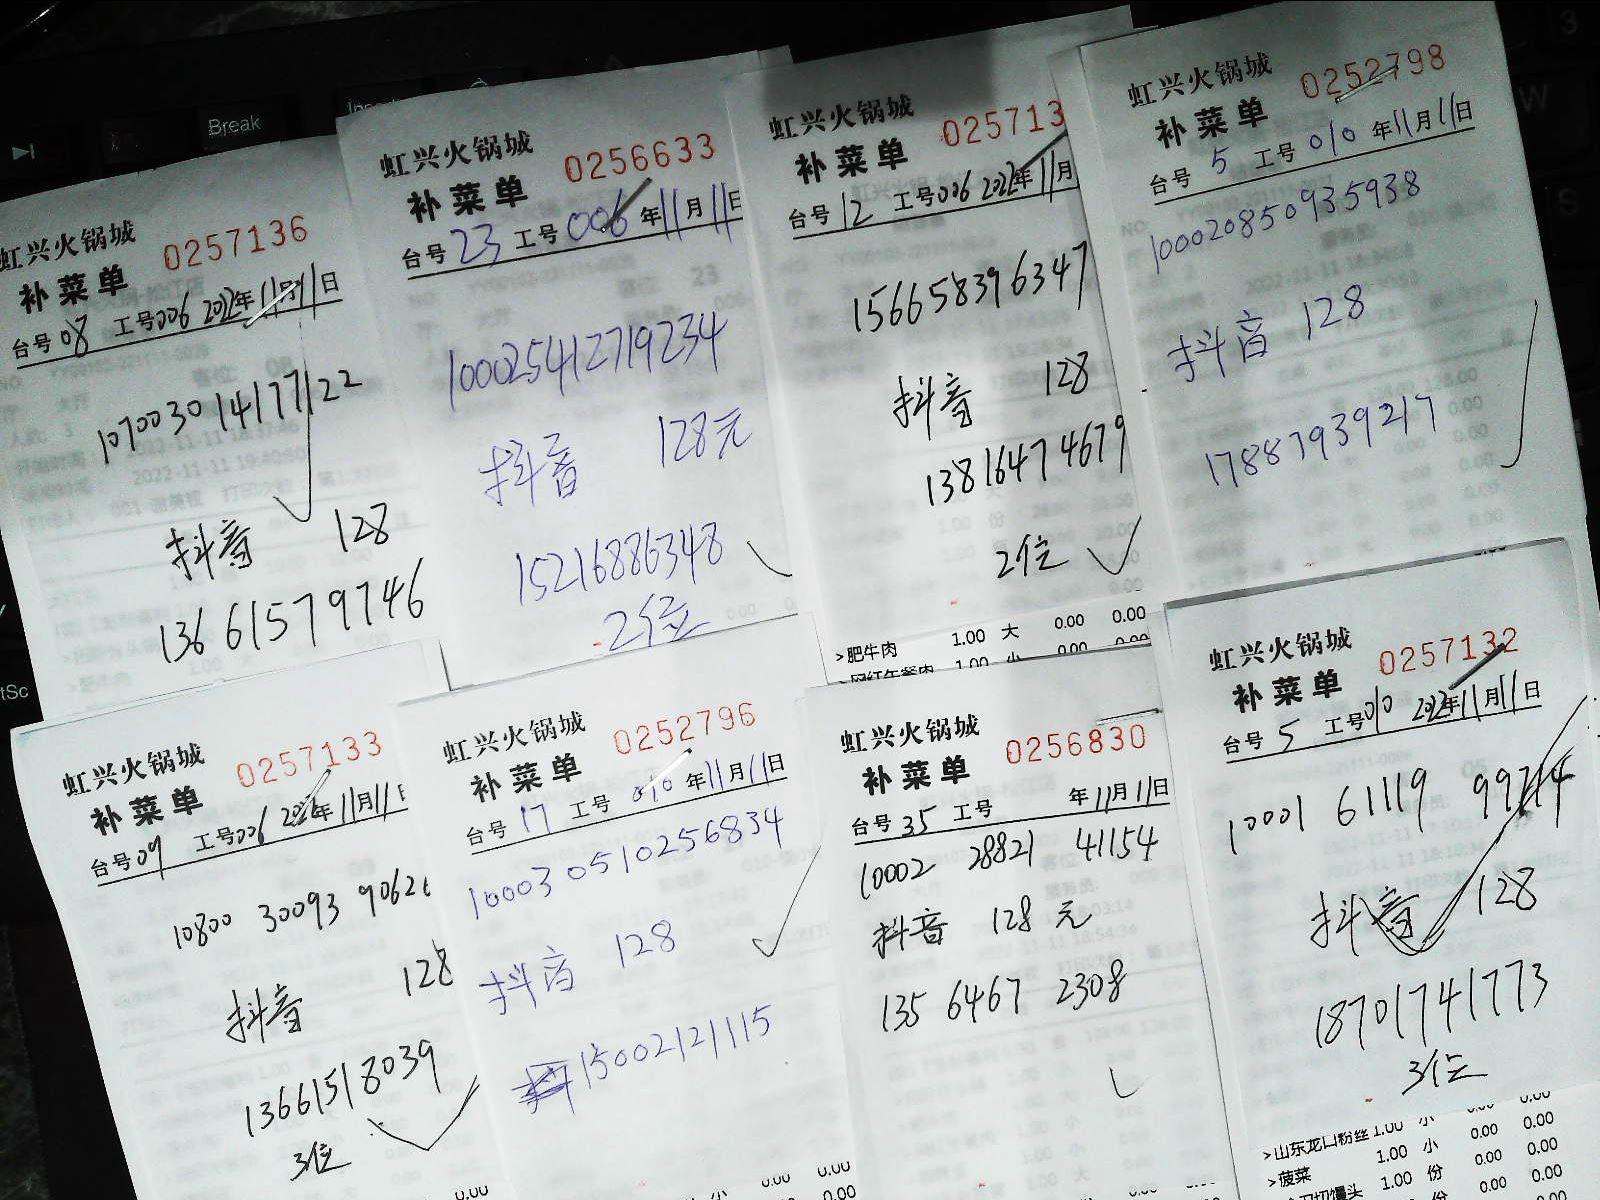 Break
虹兴火锅城
补菜单
0257136
台号08 工号006 2022年11月11日
107003014177122
抖音 128
13661579746
虹兴火锅城
补菜单
0256633
台号23 工号006 年11月11日
100025412719234
抖音 128元
15216886348
2位
虹兴火锅城
补菜单
025713
台号12 工号006 2022年11月
156658396347
抖音 128
13816474679
2位
>肥牛肉 1.00 大 0.00 0.00
虹兴火锅城
补菜单
0252798
台号 5 工号010 年11月11日
100020850935938
抖音 128
17887939217
虹兴火锅城
补菜单
0257133
台号09 工号006 2022年11月11
10800 30093 9062
抖音 128
13661518039
3位
虹兴火锅城
补菜单
0252796
台号 17 工号 010 年11月11日
100030510256834
抖音 128
15002121115
虹兴火锅城
补菜单
0256830
台号35 工号 年11月11日
10002 28821 41154
抖音 128元
135 6467 2308
虹兴火锅城
补菜单
0257132
台号 5 工号010 2022年11月11日
10001 61119
抖音 128
18701741773
3位
>山东龙口粉丝 1.00 小 0.00 0.00
>菠菜 1.00 小 0.00 0.00
1.00 份 0.00 0.00